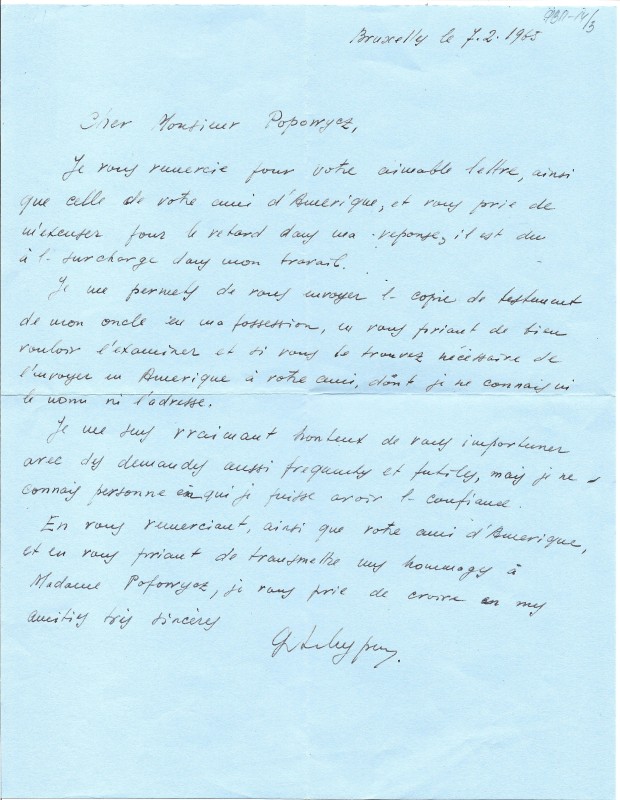 Bruxelles le 7.2.1965
Cher Monsieur Poporrycz,
Je vous remercie pour votre aimable lettre, ainsi
que celle de votre ami d'Amerique, et vous prie de
m'excuser pour le retard dans ma reponse, il est du
à l- surcharge dans mon travail.
Je me permets de vous envoyer l- copie de testament
de mon oncle en ma possession, en vous priant de bien
vouloir l'examiner et si vous le trouvez nécessaire de
l'envoyer en Amerique à votre ami, dont je ne connais ni
le nom ni l'adresse.
Je me sens vraimant honteux de vous importuner
avec des demandes aussi frequentes et futiles, mais je ne
connais personne en qui je puisse avoir l- confiance.
En vous remerciant, ainsi que votre ami d'Amerique,
et en vous priant de transmettre mes hommages à
Madame Poporrycz, je vous prie de croire en mes
amitiés très sincères